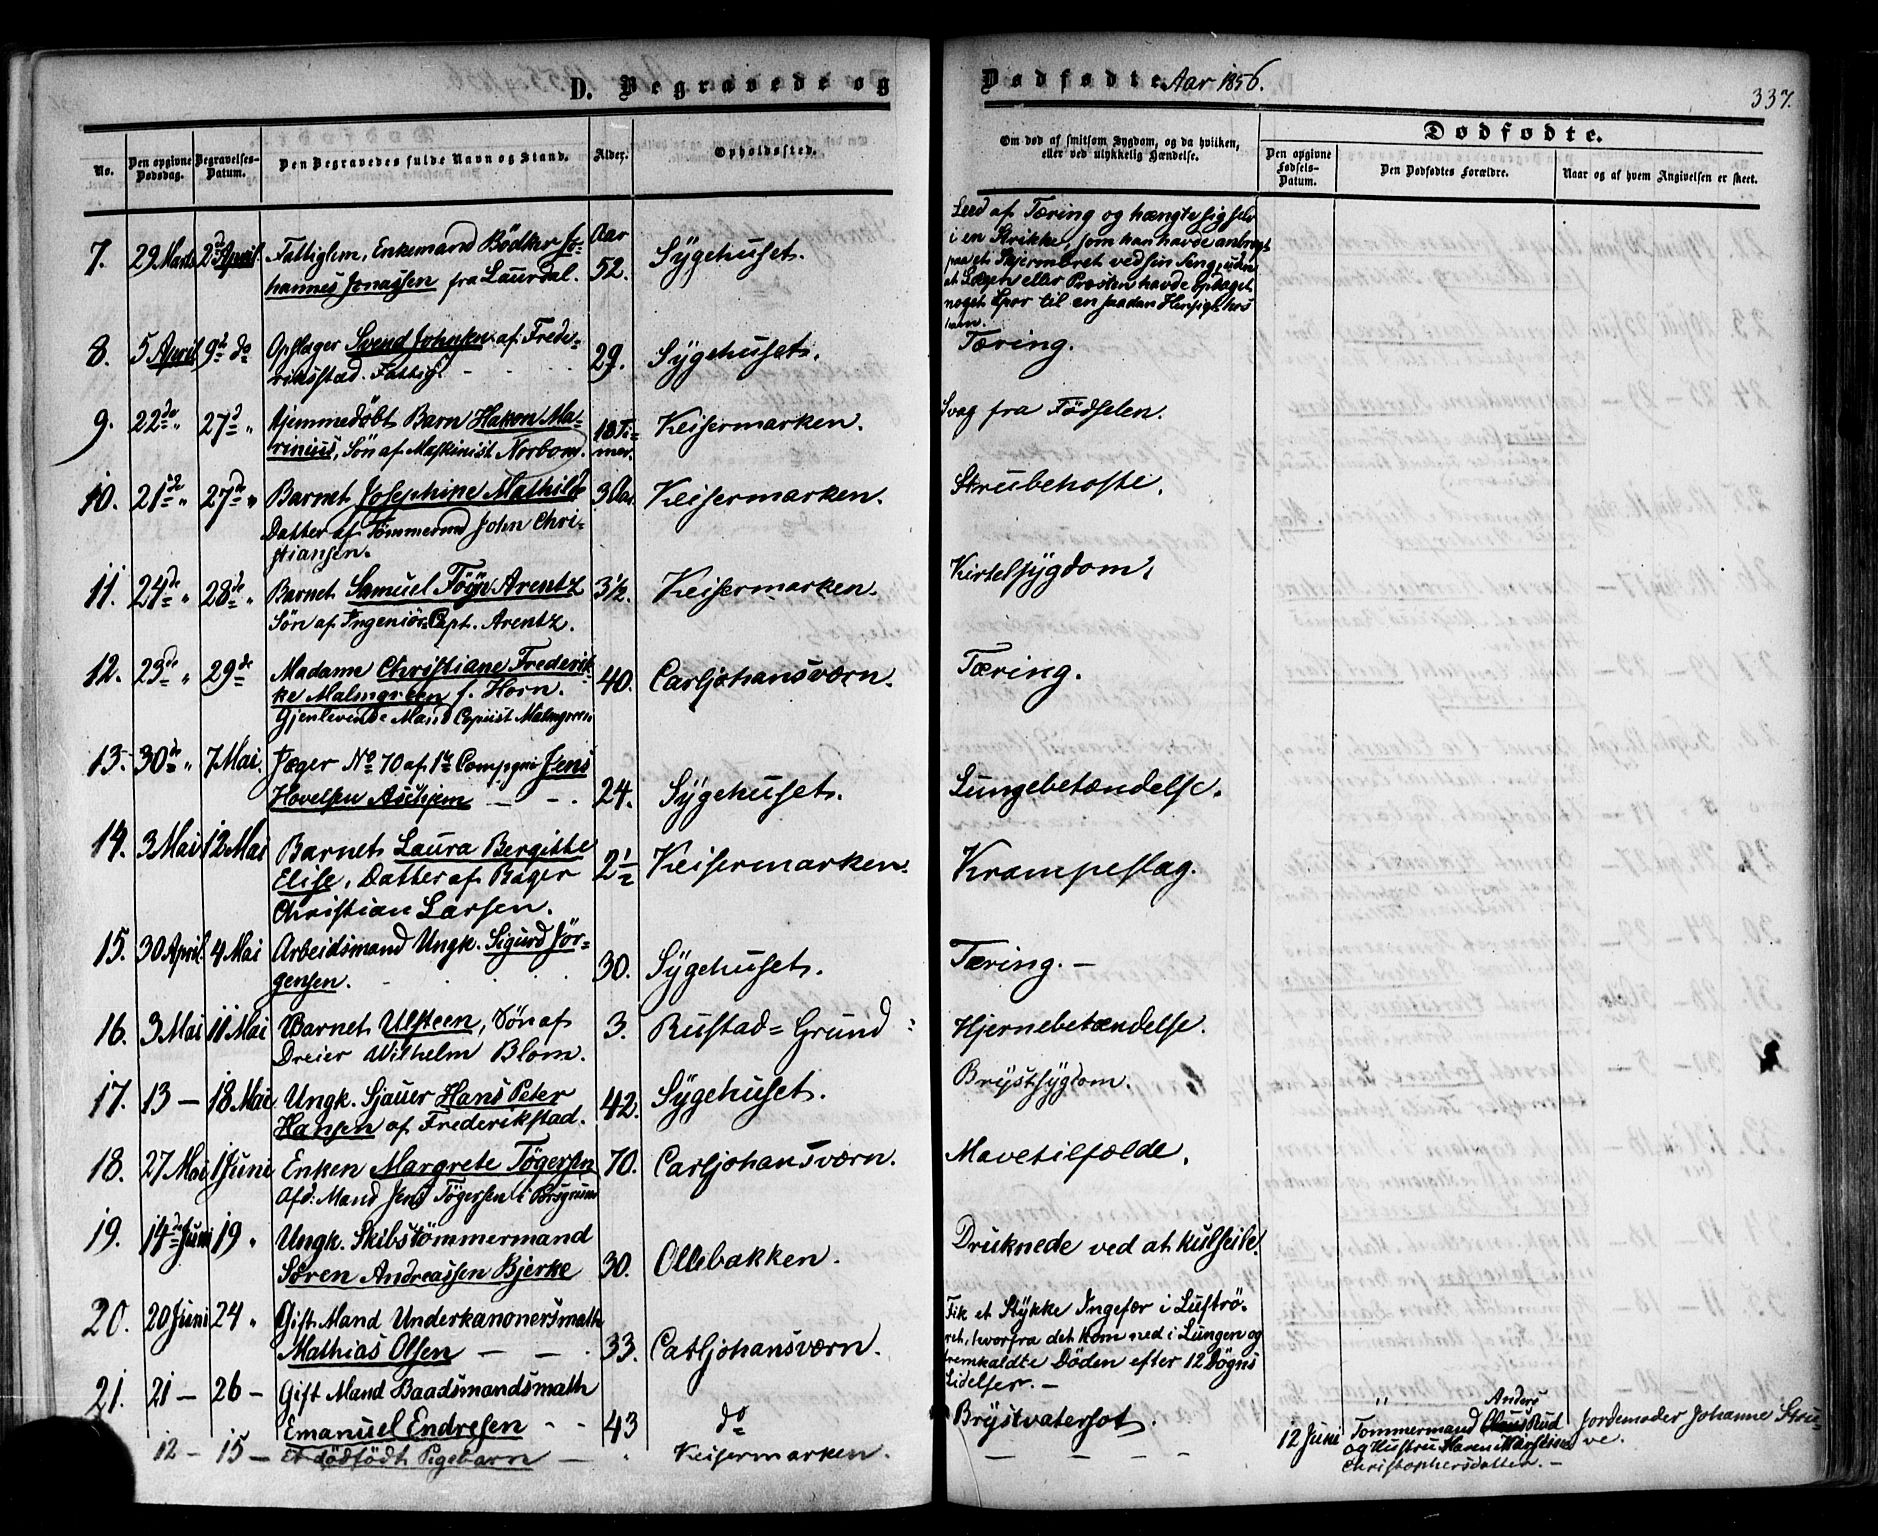 D. Begravede og
Dødfødte Aar 1856.
337.
No.
Den opgivne Dødsdag.
Begravelses-Datum.
Den Begravedes fulde Navn og Stand.
Alder.
Opholdssted.
Om død af smitsom Sygdom, og da hvilken,
eller ved ulykkelig Hændelse.
Dødfødte.
Den opgivne Fødsels-Datum.
Den Dødfødtes Forældre.
Naar og af hvem Angivelsen er skeet.
7. 29 Marts 2d April Fattiglem, Enkemand Bödker Jo-
hannes Jonassen fra Laurdal.
Aar
52.
Sygehuset.
Leed af Tæring og hængte sig selv
i en Strikke, som han havde anbragt
paa et Skjermbret ved sin Seng, uden
at Lægen eller Præsten havde opdaget
noget Spor til en saadan Hensigt hos
ham.
8. 5 April 9de do Opslager Svend Johnsen af Frede-
riksstad. Fattig.
29. Sygehuset. Tæring.
9. 22de " 27d " Hjemmedøbt Barn Hakon Ma-
rinius, Søn af Maskinist Norbom.
18 Ti-
mer.
Keisermarken. Svag fra Fødselen.
10. 21de " 27de " Barnet Josephine Mathilde
Datter af Tömmermd John Chri-
stiansen.
3 Aar. Keisermarken. Strubehoste.
11. 24de " 28de " Barnet Samuel Föyn Arentz
Sön af Ingeniör-Capt. Arentz.
3 1/2. Keisermarken. Kirtelsygdom.
12. 23de " 29de Madame Christiane Frederik-
ke Malmgreen f. Horn.
Gjenlevende Mand Copiist Malmgreen
40. Carljohansværn. Tæring.
13. 30de " 7 Mai. Jæger No 70 af 1ste Compgni Jens
Hovelsen Aschjem
24. Sygehuset. Lungebetændelse.
14. 3 Mai 12 Mai Barnet Laura Bergitte
Elise, Datter af Bager
Christian Larsen.
2 1/2 Keisermarken. Krampeslag.
15. 30 April. 4 Mai Arbeidsmand Ungk. Sigurd Jör-
gensen.
30. Sygehuset. Tæring. –
16. 3 Mai 11 Mai Barnet Ulsteen, Sön af
Dreier Wilhelm Blom.
3. Rustad-Grund Hjernebetændelse.
17. 13 – 18 Mai Ungk. Sjauer Hans Peter
Hansen af Frederikstad.
42. Sygehuset. Brystsygdom.
18. 27 Mai 1 Juni Enken Margrete Tögersen
Afd: Mand Jens Tögersen i Porsgrund
70. Carljohansværn. Mavetilfælde.
19. 14de Juni 19 " Ungk. Skibstömmermand
Sören Andreassen Bjerke
30. Ollebakken. Druknede ved at kulseile.
20. 20 Juni 24 " Gift Mand Underkanonersmath
Mathias Olsen – –
33. Carljohansværn.
Fik et Stykke Ingefær i Luftrö-
ret, hvorfra det kom ned i Lungen og
fremkaldte Döden efter 12 Dögns
Lidelser. –
21. 21 – 26 – Gift Mand Baadsmandsmath
Emanuel Endresen
43 do Brystvatersot.
12 – 15 – Et dödfödt Pigebarn – Keisermarken. – – –
12 Juni
Anders
Tömmermand Rud
og Hustru Karen
Christophersdatter. –
Jordemoder Johanne Stru-
ve.